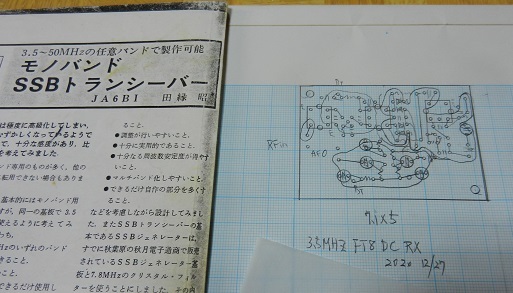 3.5～50MHzの任意バンドで製作可能
モノバンド
SSBトランシーバー
JA6BI 田縁 昭
は極度に高級化してしまい、
ずかしくなっているようで
て、十分な感度があり、比
を考えてみました。
ンド専用のものが多く、他の
転用できない場合もありま
基本的にはモノバンド用
すが、同一の基板で 3.5
使えるように考えてみ
MHzのいずれのバンド
ること。
こと。
できるだけ使用し
ること。
●調整が行いやすいこと。
●十分に実用的であること。
●十分なる周波数安定度が得やす
いこと。
●マルチバンド化しやすいこと。
●できるだけ自作の部分を多くす
などを考慮しながら設計してみまし
た。またSSBトランシーバーの基
本であるSSBジェネレーターは、
すでに秋葉原の秋月電子通商で販売
されているSSBジェネレーター基
板と7.8MHzのクリスタル・フィル
ターを使うことにしました。その内
RFin
AFO
71x5
3.5MHZ FT8 DC RX
2020 12/27